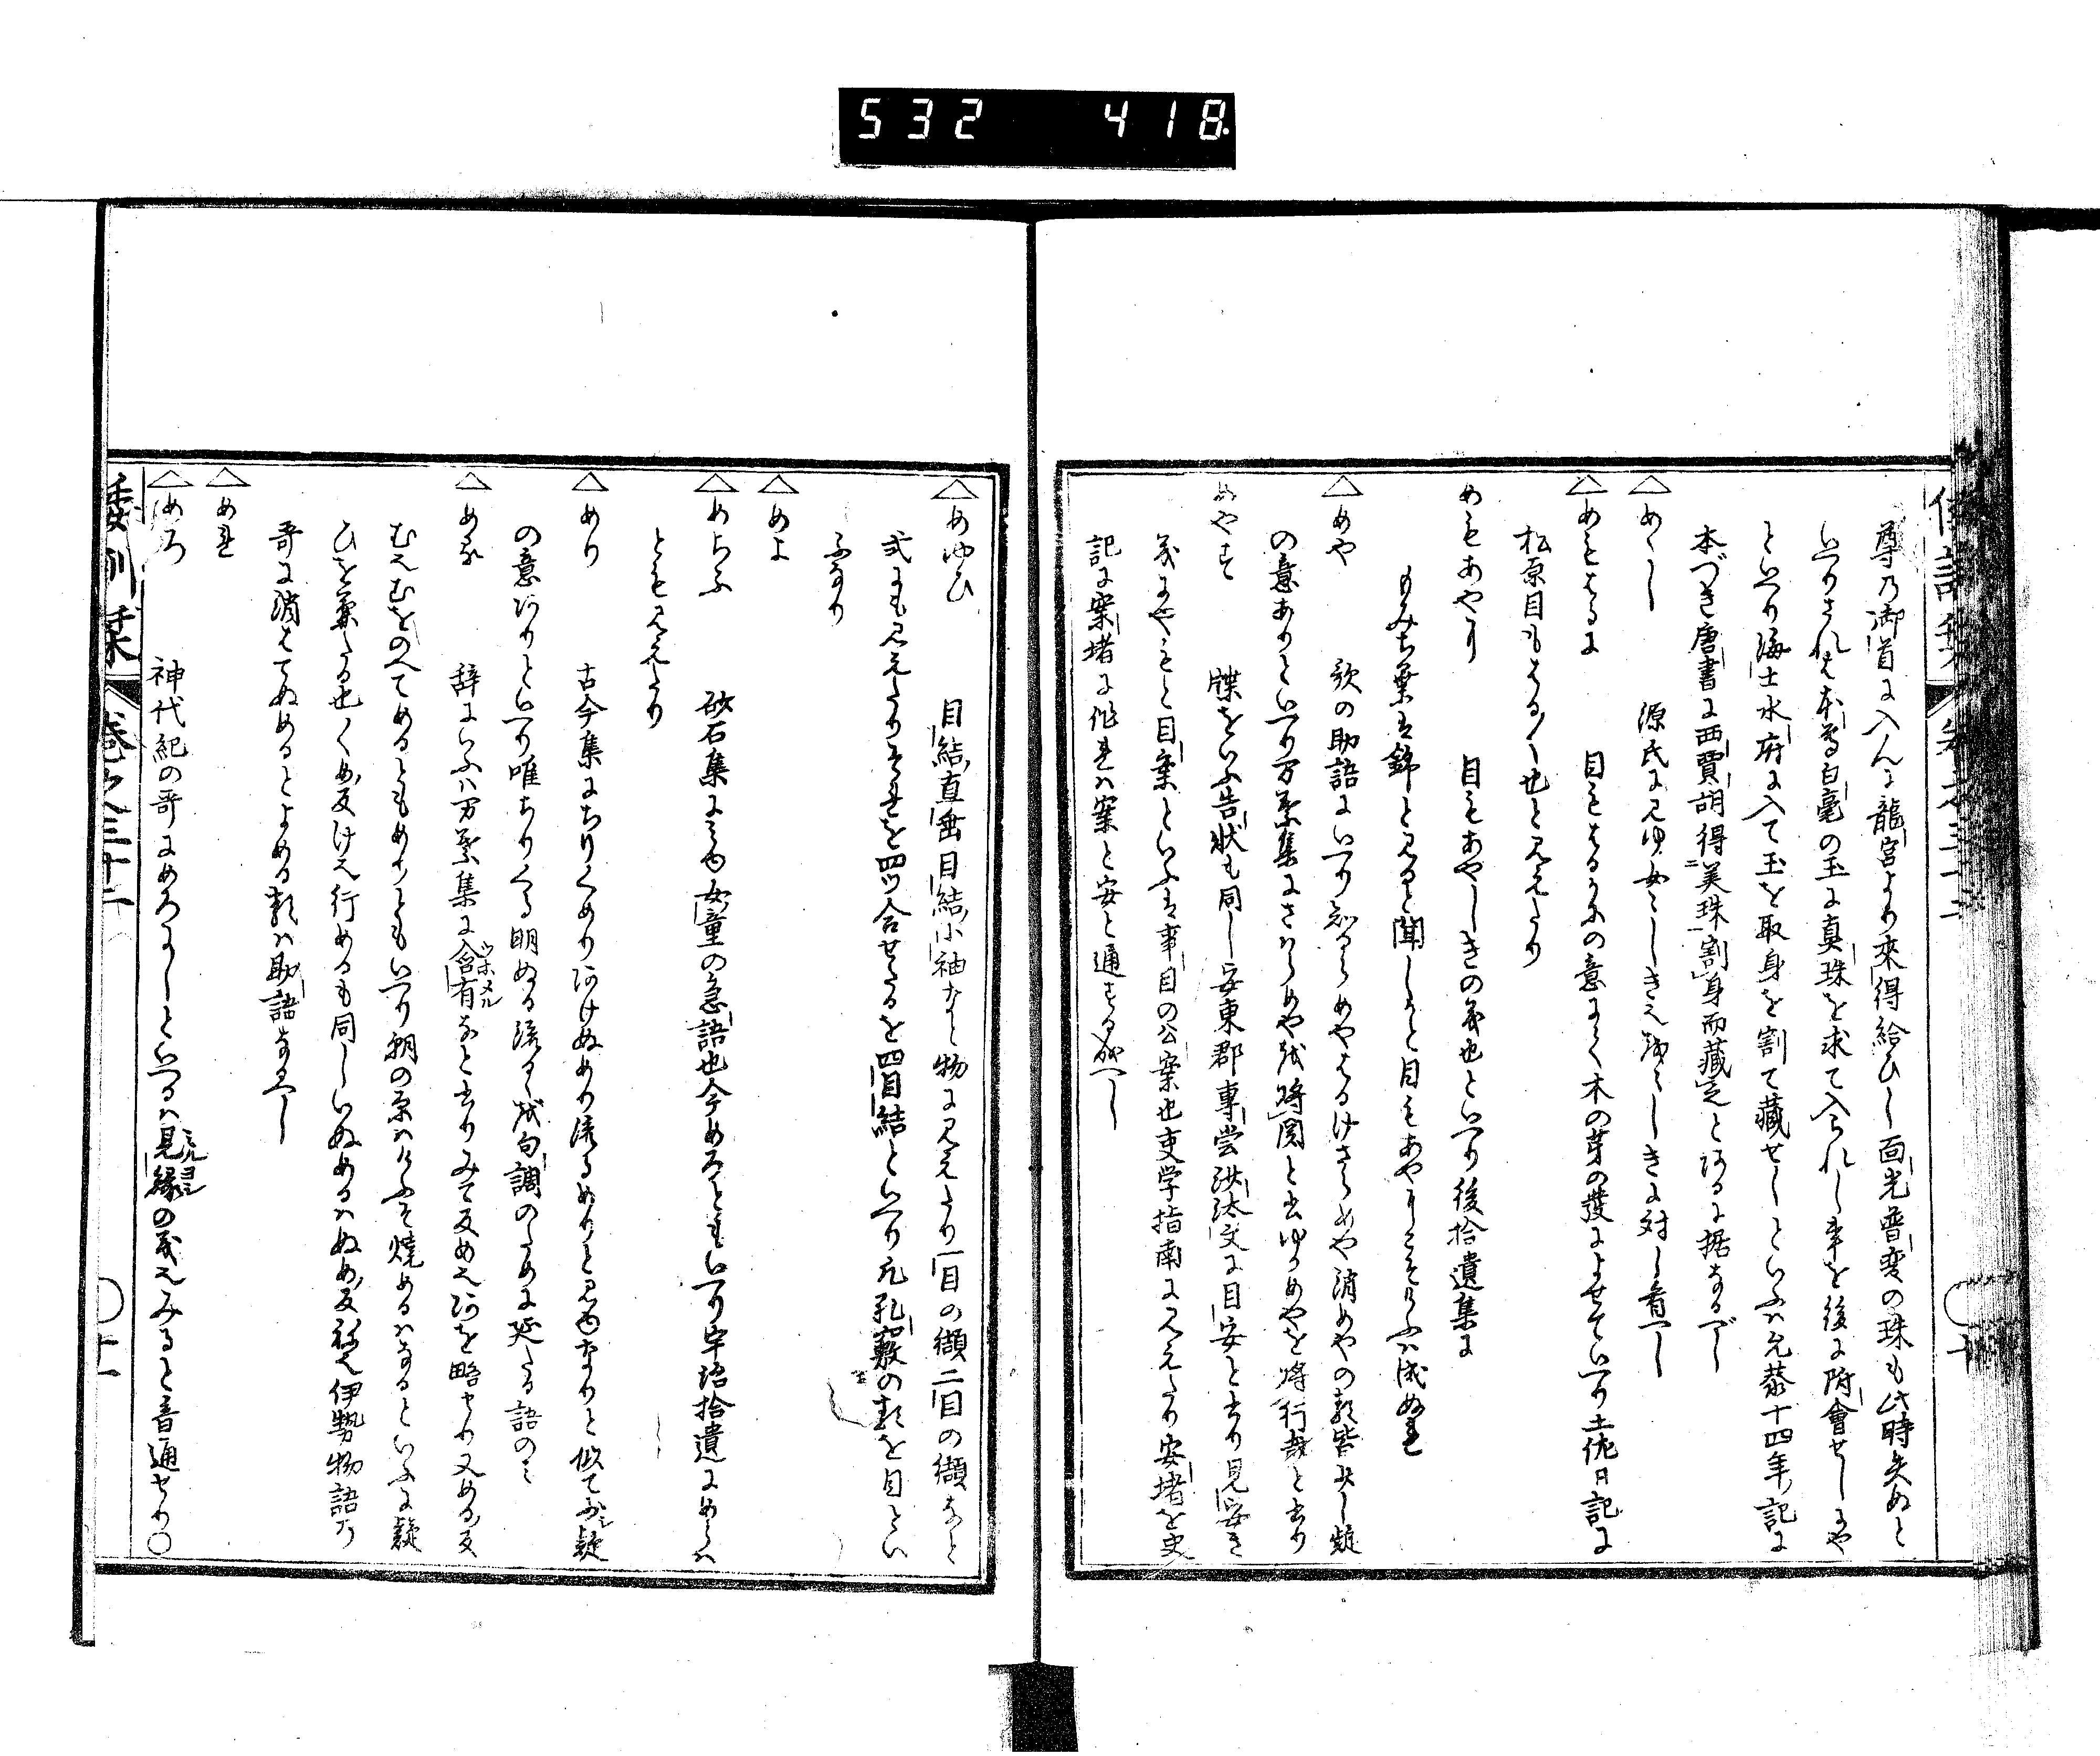 532 418
尊の御首に入んに龍宮より來得給ひし面光普変の珠も此時失ぬと
いへりされは本尊白毫の玉に真珠を求て入られし事を後に附會せしにや
といへり海士水府に入て玉を取身を割て藏せしといふハ允恭十四年記に
本づき唐書に西賈胡得美珠割身而藏之とあるに据なるべし
めゝし 源氏に見ゆ女々しき也をゝしきに対し看へし
めもはるに 目もはるかの意にて木の芽の發によせていへり土佐日記に
松原目もはる／＼也と見えたり
めもあやに 目もあやしきの義也といへり後拾遺集に
もみち葉は錦と見ると聞しかと目もあやにこそけふハ成ぬれ
めや 歌の助語にいへり忘らめやはるけさらめや消めやの類皆决し難
の意ありといへり万葉集にさハらめやを将関と書ゆかめやを将行哉と書り
めやす 牒をいふ告状も同し安東郡專當沙汰文に目安と書り見安き
義にやもと目案といふは事目の公案也吏学指南に見えたり安堵を史
記に案堵に作れハ案と安と通する成へし
めゆひ 目結直垂目結小袖なと物に見えたり一目の纈二目の纈なと
式にも見えたりそれを四ツ合せたるを四目結といへり凡孔竅の類を目とい
ふなり
めよ
めらふ 砂石集にみゆ女童の急語也今めろともいへり宇治拾遺にめらハ
とも見えたり
めり 古今集にちりくめりあけぬめり流るめりと見ゆなりと似て少し疑
の意ありといへり唯ちりくる明ぬる流るゝを句調のために延たる語のミ
める 辞にいふハ万葉集に含有なと書りみて反め也アを略せり又める反
む也むをのへてめるともめりともいへり朝の原ハけふそ燒めるハなるといふに疑
ひを兼たる也くめ反け也行めるも同しいぬめるハぬめ反ね也伊勢物語の
哥に消はてぬめるとよめる類ハ助語なるへし
めれ
めろ 神代紀の哥にめろよしといへるハ見縁の義也みると音通せり○
倭訓栞 卷之三十二 ○十一